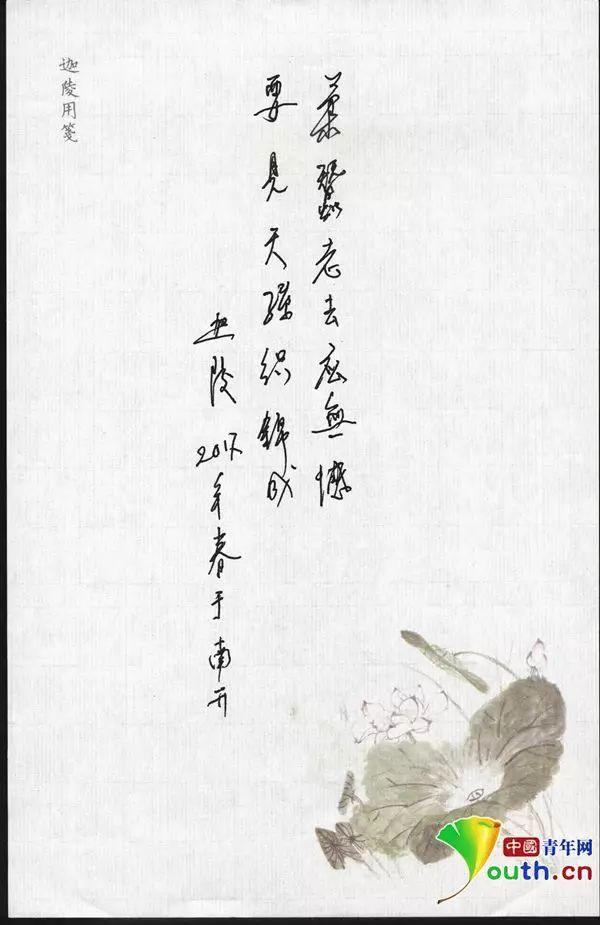 柔蠶老去应無憾
要見天孫织錦成
迦陵 2017年春于南开
迦陵用箋
中國青年网
Youth.cn